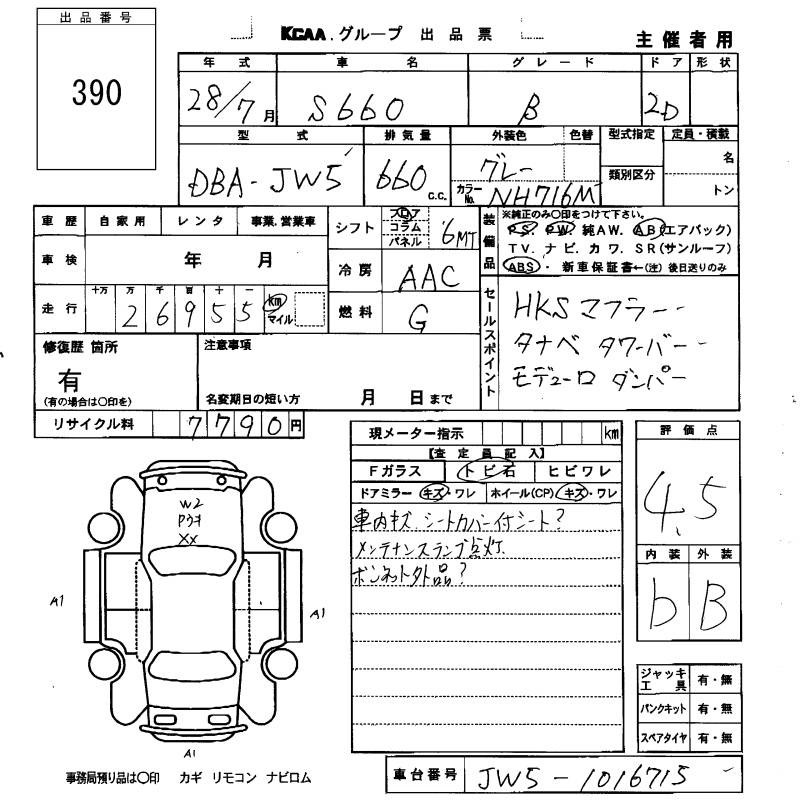 出品番号
390
KCAA.グループ 出品票
主催者用
年式 車名 グレード ドア 形状
28/7月 S660 β 2D
型式 排気量 外装色 色替 型式指定 定員・積載
DBA-JW5 660 c.c. グレー カラーNo. NH716M 類別区分 名 トン
車歴 自家用 レンタ 事業.営業車
シフト フロア コラム パネル 6MT
装備品 ※純正のみ〇印をつけて下さい。
PS. PW 純AW. AB(エアバック)
TV. ナビ. カワ. SR(サンルーフ)
ABS・ 新車保証書←(注)後日送りのみ
車検 年 月
冷房 AAC
走行 十万 万 千 百 十 一 26955 km マイル
燃料 G
セールスポイント
HKSマフラー
タナベ タワーバー
モデューロ ダンパー
修復歴 箇所
有
(有の場合は〇印を)
注意事項
名変期日の短い方 月 日まで
リサイクル料 7790円
現メーター指示 km
【査定員記入】
Fガラス トビ石 ヒビワレ
ドアミラー キズ・ワレ ホイール(CP) キズ・ワレ
車内キズ シートカバー付シート?
メンテナンスランプ点灯
ボンネット外品?
評価点
4.5
内装 外装
b B
W2
Pウキ
XX
A1
A1
A1
ジャッキ工具 有・無
パンクキット 有・無
スペアタイヤ 有・無
事務局預り品は〇印 カギ リモコン ナビロム
車台番号 JW5-1016715